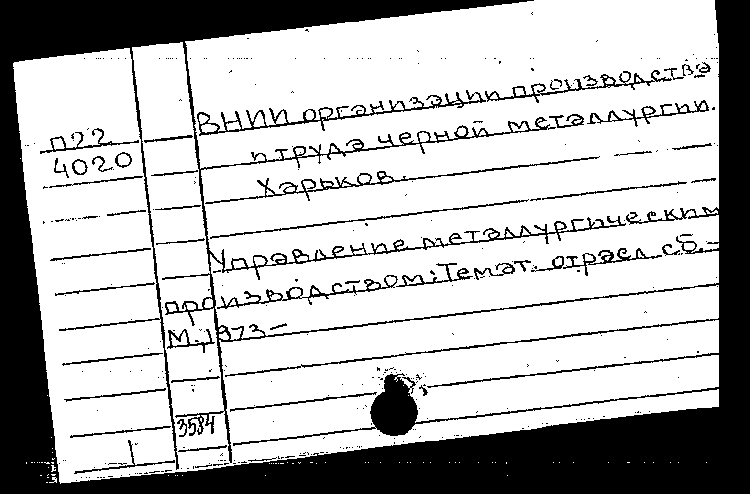 П22
4020
ВНИИ организации производства
и труда черной металлургии.
Харьков.
Управление металлургическим
производством: Темат. отрасл. сб.-
М., 1973-
3584
1